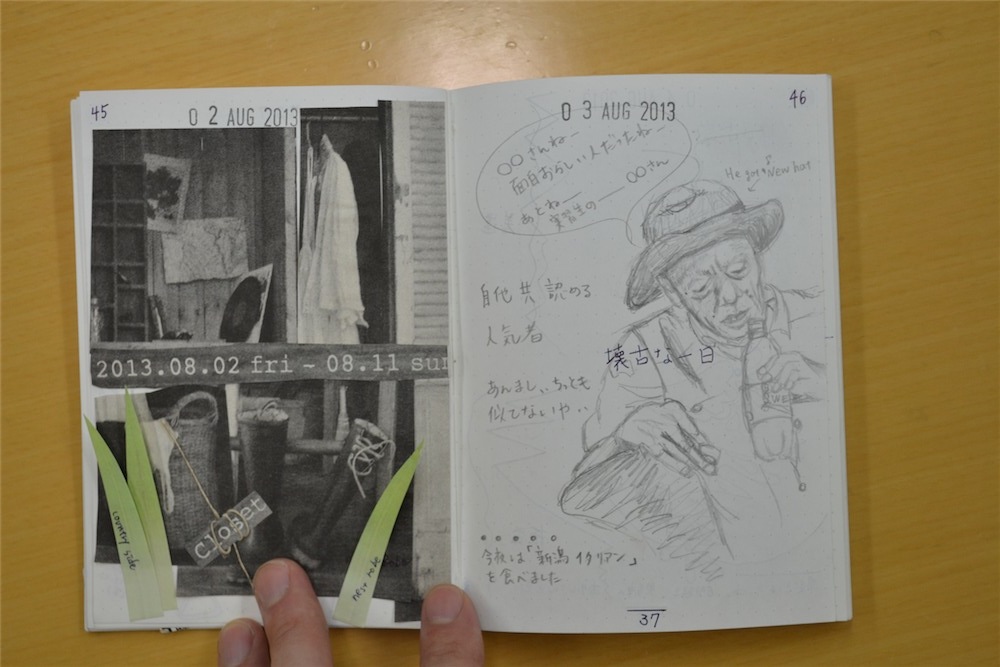 45
02 AUG 2013
2013.08.02 fri ~ 08.11 sun
closet
country side
46
03 AUG 2013
〇〇さんねー
面白おらしい人だったねー
あとねー
実習生の―〇〇さん
He got a New hat
自他共認める
人気者
懐古な一日
あんましぃちっとも
似てないやぃ
今夜は「新潟イタリアン」
を食べました
37